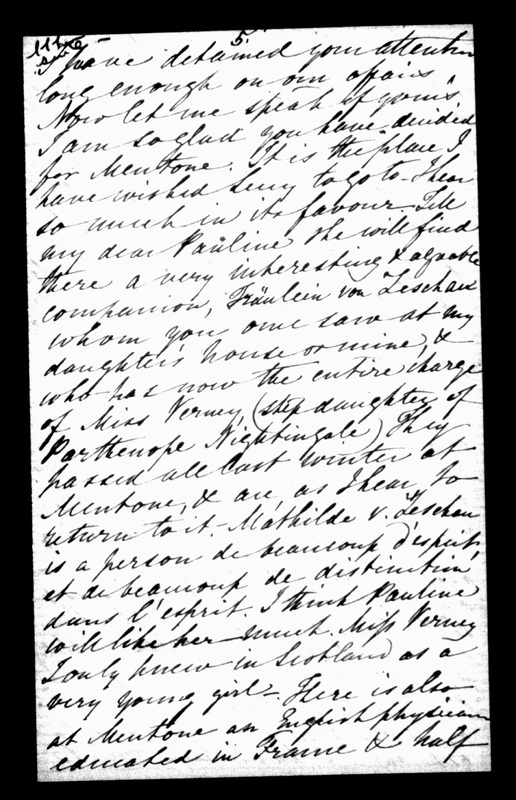 5
I have detained your attention
long enough on our affairs.
Now let me speak of yours.
I am so glad you have decided
for Mentone. It is the place I
have wished Seny to go to. I hear
so much in its favour. Tell
my dear Pauline she will find
there a very interesting & agreeable
companion, Fräulein von Zeschau
whom you once saw at my
daughter's house or mine, &
who has now the entire charge
of Miss Verney (step daughter of
Parthenope Nightingale) They
passed all last winter at
Mentone, & are, as I hear, to
return to it. Mathilde v. Zeschau
is a person de beaucoup d'esprit,
et de beaucoup de distinction
dans l'esprit. I think Pauline
will like her much. Miss Verney
I only knew in Scotland as a
very young girl. There is also
at Mentone an English physician
educated in France & half